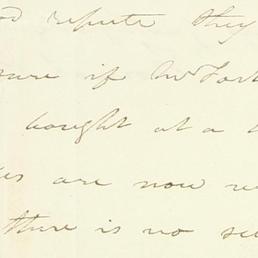 repute they
if Mr Fort
bought at a
are now
there is no